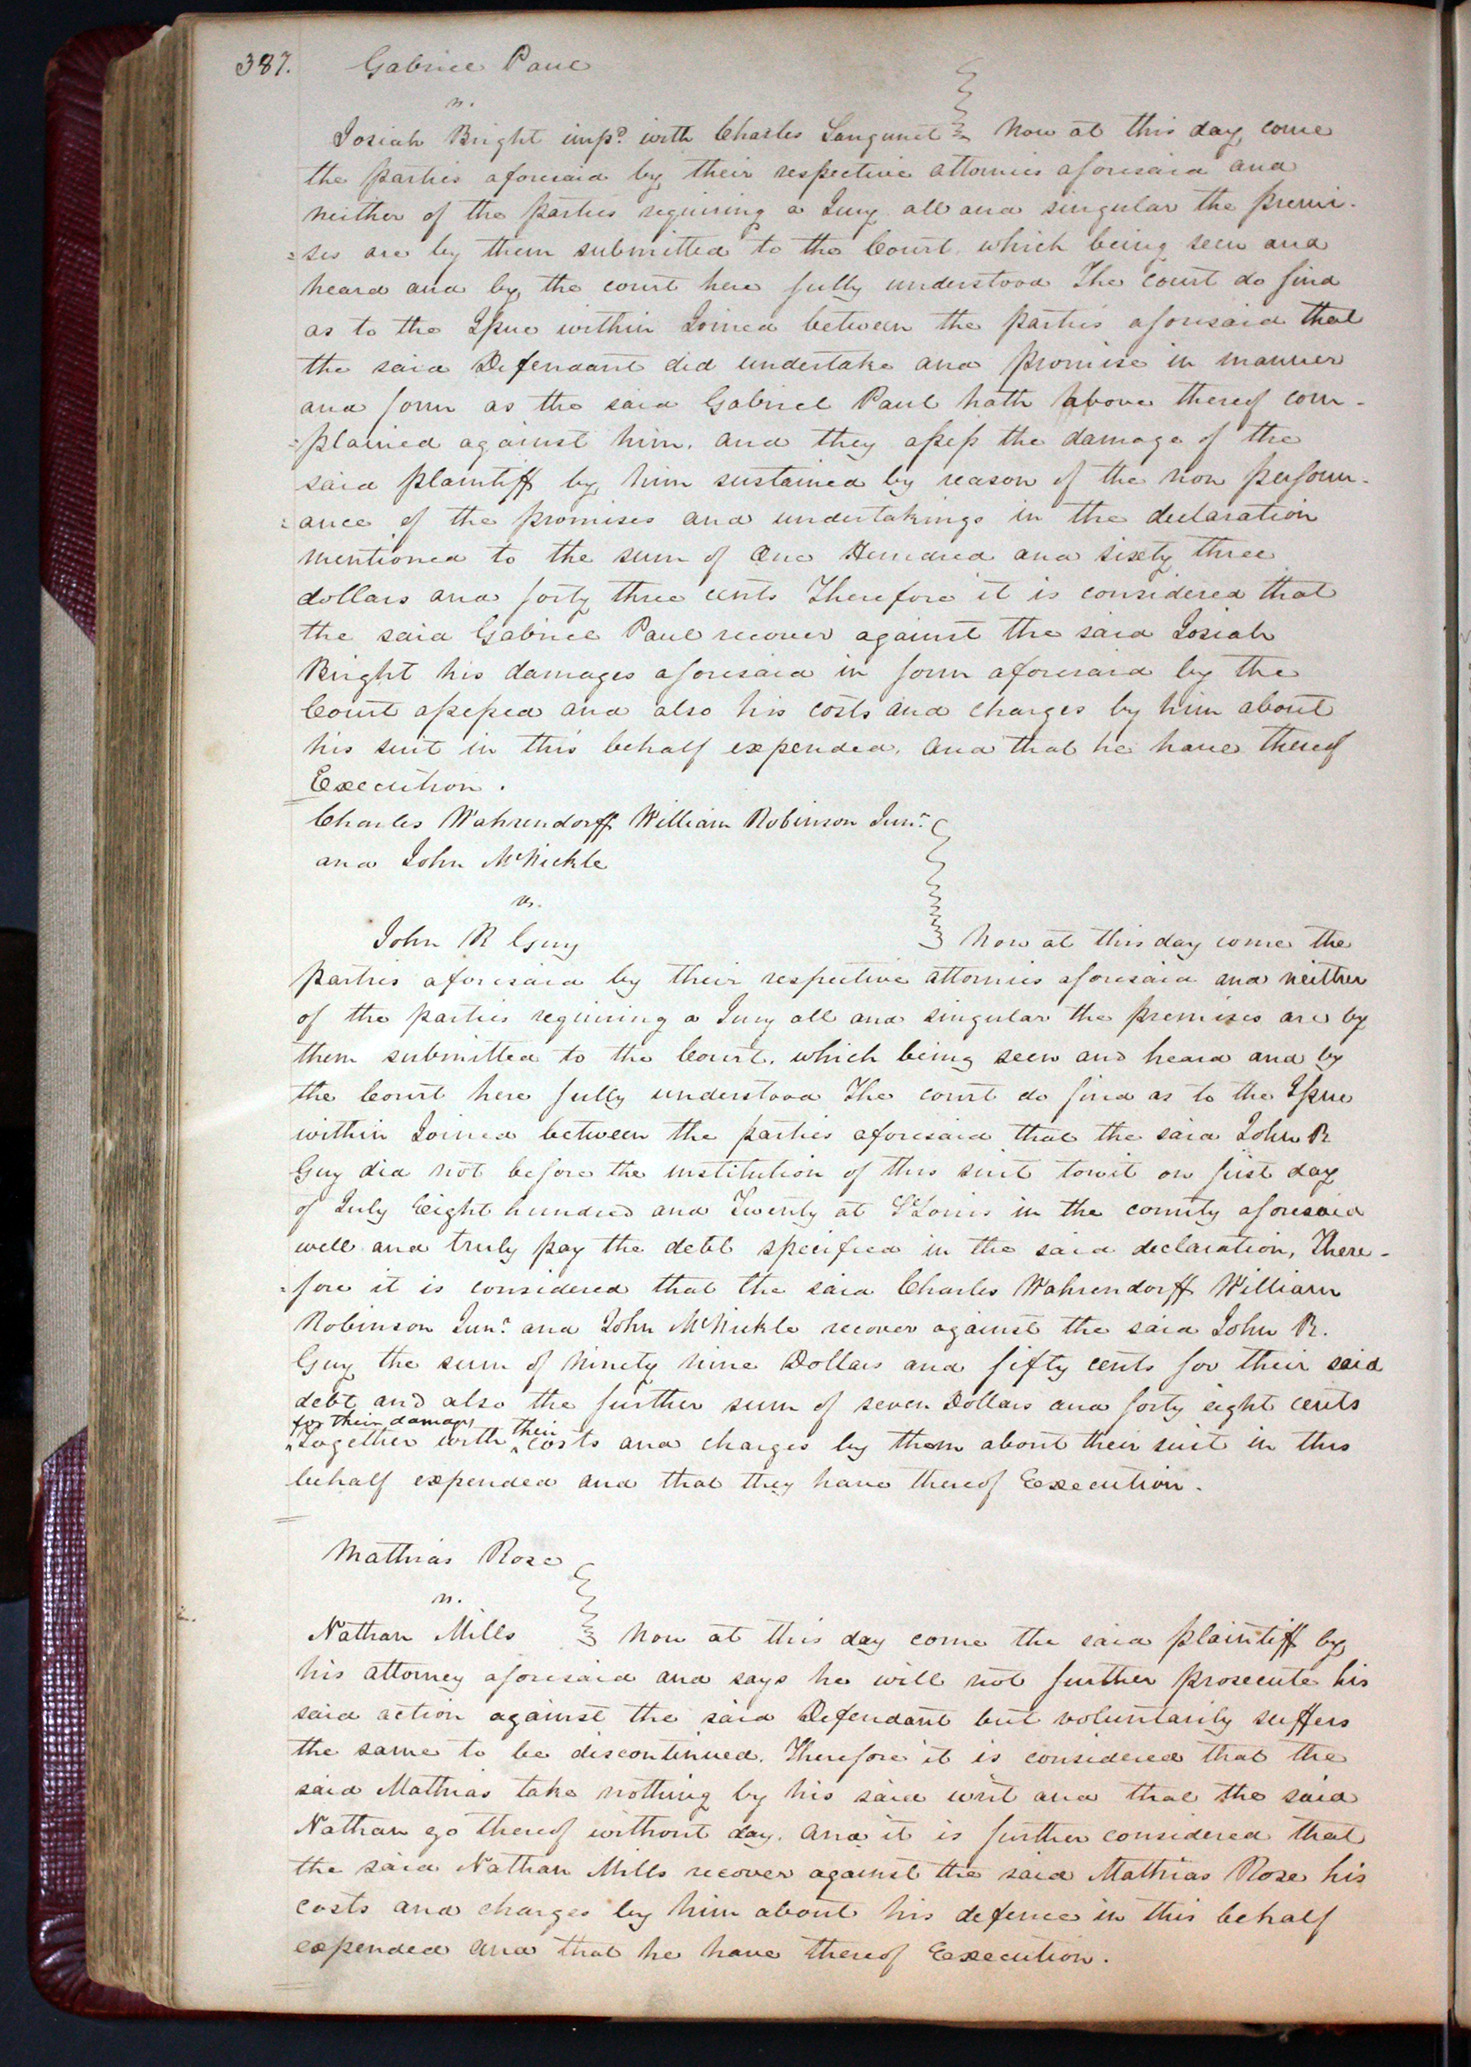 387. Gabriel Paul
vs.
Josiah Bright impd. with Charles Sanguinet Now at this day come
the parties aforesaid by their respective attornies aforesaid and
neither of the parties requiring a Jury all and singular the premi-
=ses are by them submitted to the Court, which being seen and
heard and by the court here fully understood The court do find
as to the Issue within Joined between the parties aforesaid that
the said Defendant did undertake and promise in manner
and form as the said Gabriel Paul hath above thereof com-
=plained against him, and they assess the damage of the
said plaintiff by him sustained by reason of the non perform-
=ance of the promises and undertakings in the declaration
mentioned to the sum of One Hundred and sixty three
dollars and forty three cents Therefore it is considered that
the said Gabriel Paul recover against the said Josiah
Bright his damages aforesaid in form aforesaid by the
Court assessed and also his costs and charges by him about
his suit in this behalf expended, and that he have thereof
Execution.
Charles Wahrendorff William Robinson Junr.
and John McNickle
vs.
John R Guy Now at this day come the
parties aforesaid by their respective attornies aforesaid and neither
of the parties requiring a Jury all and singular the premises are by
them submitted to the Court, which being seen and heard and by
the Court here fully understood The court do find as to the Issue
within Joined between the parties aforesaid that the said John R
Guy did not before the institution of this suit towit on first day
of July Eight hundred and Twenty at St Louis in the county aforesaid
well and truly pay the debt specified in the said declaration, There-
=fore it is considered that the said Charles Wahrendorff William
Robinson Junr. and John McNickle recover against the said John R.
Guy the sum of Ninety nine Dollars and fifty cents for their said
debt and also the further sum of seven Dollars and forty eight cents
for their damages
Together with their costs and charges by them about their suit in this
behalf expended and that they have thereof Execution.
Mathias Rose
vs.
Nathan Mills Now at this day come the said plaintiff by
his attorney aforesaid and says he will not further prosecute his
said action against the said Defendant but voluntarily suffers
the same to be discontinued. Therefore it is considered that the
said Mathias take nothing by his said writ and that the said
Nathan go thereof without day, and it is further considered that
the said Nathan Mills recover against the said Mathias Rose his
costs and charges by him about his defence in this behalf
expended and that he have thereof Execution.